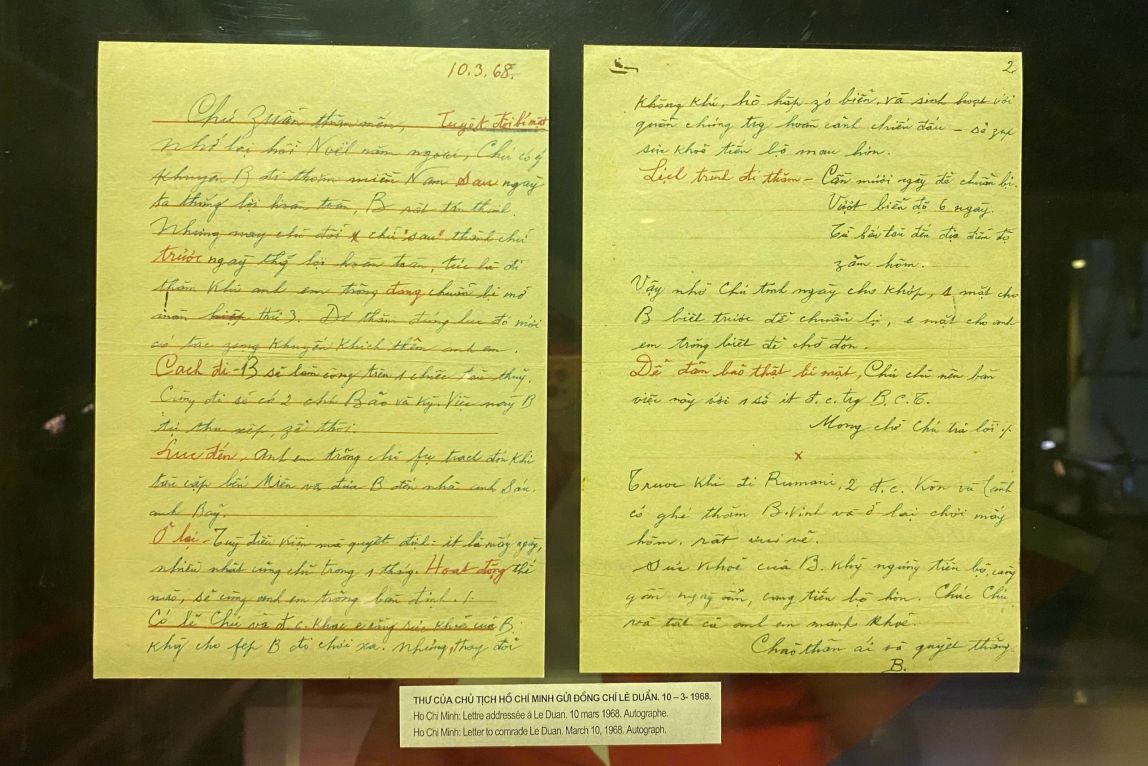 10.3.68.
Chú Zuẩn thân mến, Tuyệt đối bí mật
Nhớ lại hồi Noël năm ngoái, Chú có ý
khuyên B đi thăm miền Nam sau ngày
ta thắng lợi hoàn toàn, B rất tán thành.
Nhưng nay chú đổi chữ "sau" thành chữ
trước ngày thắng lợi hoàn toàn, tức là đi
thăm khi anh em trỏng đang chuẩn bị mở
màn thứ 3. Đi thăm đúng lúc đó mới
có tác zụng khuyến khích thêm anh em.
Cách đi - B sẽ làm công trên 1 chiếc tàu thủy.
Cùng đi sẽ có 2 chú Bảo và Kỳ. Việc này B
tự thu xếp, zễ thôi.
Lúc đến, anh em trỏng chỉ fụ trách đón khi
tàu cập bến Miên và đưa B đến nhà anh Sáu,
anh Bảy.
Ở lại - Tuỳ điều kiện mà quyết định: ít là mấy ngày,
nhiều nhất cũng chỉ trong 1 tháng. Hoạt động thế
nào, sẽ cùng anh em trỏng bàn định ./.
Có lẽ Chú và đ.c. khác e rằng sức khoẻ của B,
khg cho fép B đi chơi xa. Nhưng, thay đổi
2
không khí, hô hấp zó biển, và sinh hoạt với
quần chúng trg hoàn cảnh chiến đấu - sẽ zúp
sức khoẻ tiến bộ mau hơn.
Lịch trình đi thăm - Cần mười ngày để chuẩn bị.
Vượt biển độ 6 ngày.
Từ bến tàu đến địa điểm độ
zăm hôm.
Vậy nhờ Chú tính ngày cho khớp, 1 mặt cho
B biết trước để chuẩn bị, 1 mặt cho anh
em trỏng biết để chờ đón.
Để đảm bảo thật bí mật, Chú chỉ nên bàn
việc này với 1 số ít đ.c. trg B.C.T.
Mong chờ Chú trả lời ./.
x
Trước khi đi Rumani, 2 đ.c. Kôn và
có ghé thăm B. Vinh và ở lại chơi mấy
hôm, rất vui vẻ.
Sức khoẻ của B. khg ngừng tiến bộ, càng
gần ngày càng tiến bộ hơn. Chúc Chú
và tất cả anh em mạnh khoẻ.
Chào thân ái và quyết thắng
B.
THƯ CỦA CHỦ TỊCH HỒ CHÍ MINH GỬI ĐỒNG CHÍ LÊ DUẨN. 10 – 3- 1968.
Ho Chi Minh: Lettre addressée à Le Duan. 10 mars 1968. Autographe.
Ho Chi Minh: Letter to comrade Le Duan. March 10, 1968. Autograph.